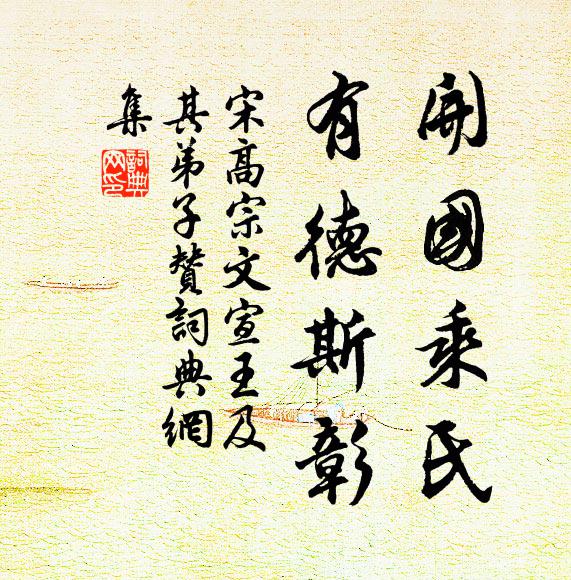 開國乘氏
有德斯彰
宋高宗文宣王及
其弟子贊詞典網
集
詞典
网印